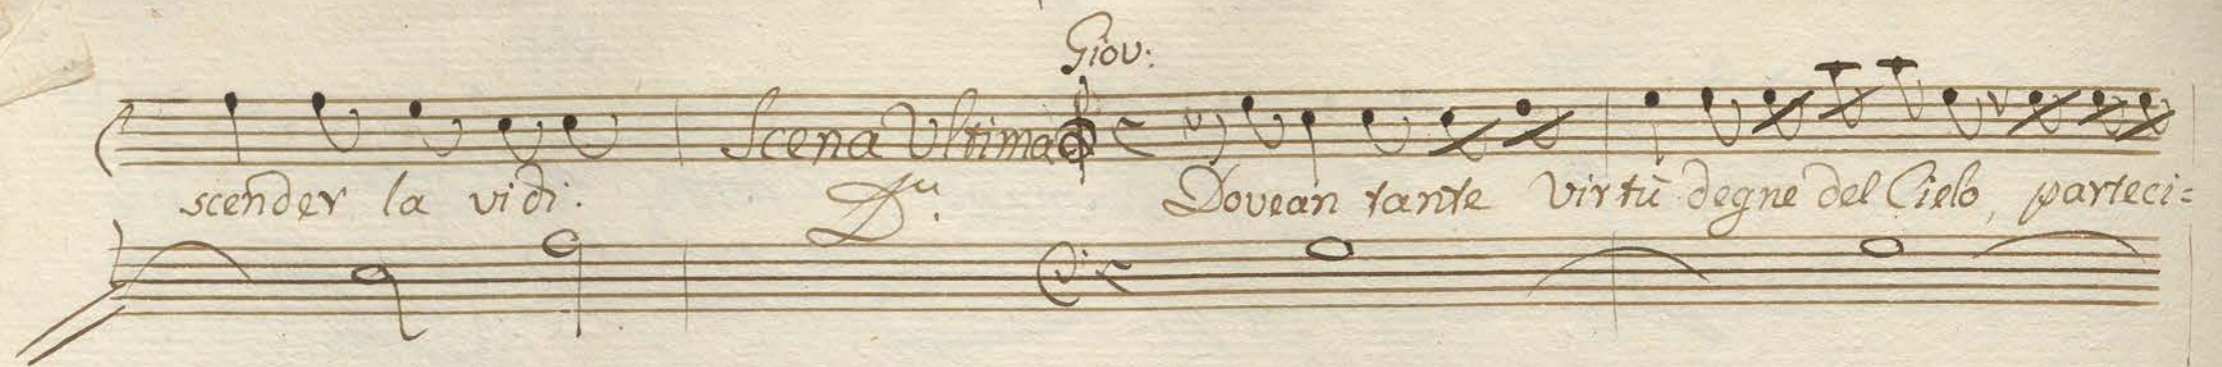 Giov:
Scena Ultima
scender la vidi. Dti. Dovean tante Virtù degne del Cielo, parteci=